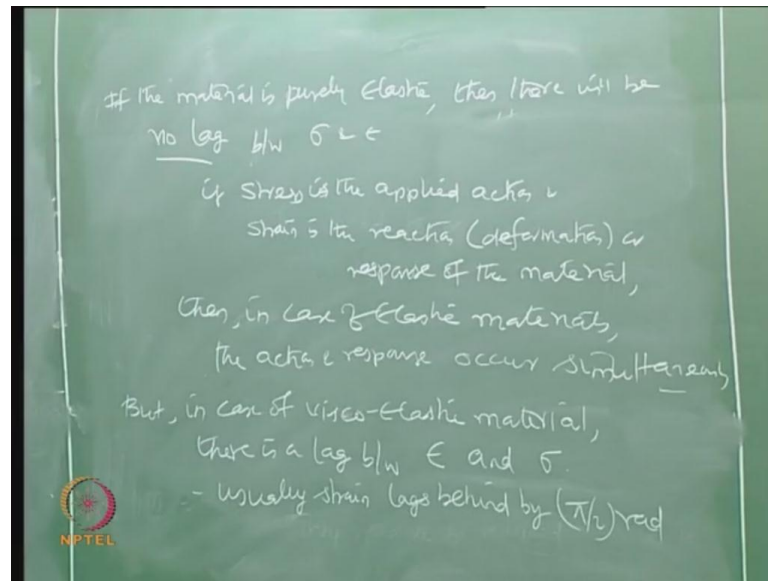 If the material is purely Elastic, then there will be
no lag b/w σ & ϵ
if stress is the applied action &
strain is the reaction (deformation) or
response of the material,
then, in case of Elastic materials,
the action & response occur simultaneously
But, in case of visco-Elastic material,
there is a lag b/w ϵ and σ.
- usually strain lags behind by (π/2) rad
NPTEL